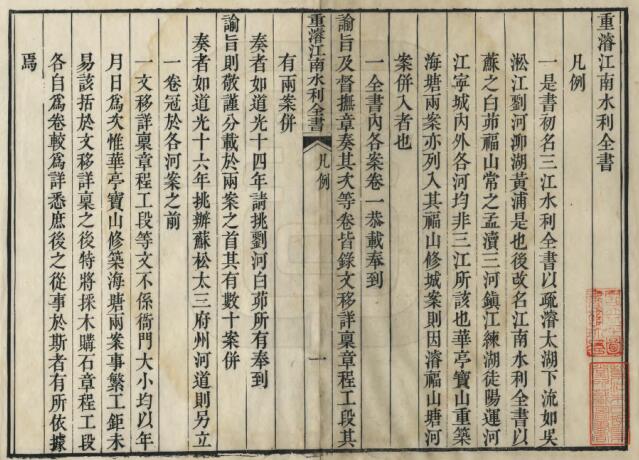 重濬江南水利全書
凡例
一是書初名三江水利全書以疏濬太湖下流如吳
淞江劉河泖湖黃浦是也後改名江南水利全書以
蘇之白茆福山常之孟瀆三河鎮江練湖徒陽運河
江寧城內外各河均非三江所該也華亭寶山重築
海塘兩案亦列入其福山修城案則因濬福山塘河
案併入者也
一全書內各案卷一恭載奉到
諭旨及督撫章奏其次等卷皆錄文移詳稟章程工段其
重濬江南水利全書
凡例
一
有兩案併
奏者如道光十四年請挑劉河白茆所有奉到
諭旨則敬謹分載於兩案之首其有數十案併
奏者如道光十六年挑辦蘇松太三府州河道則另立
一卷冠於各河案之前
一文移詳稟章程工段等文不係衙門大小均以年
月日為次惟華亭寶山修築海塘兩案事繁工鉅未
易該括於文移詳稟之後特將採木購石章程工段
各自為卷較為詳悉庶後之從事於斯者有所依據
焉